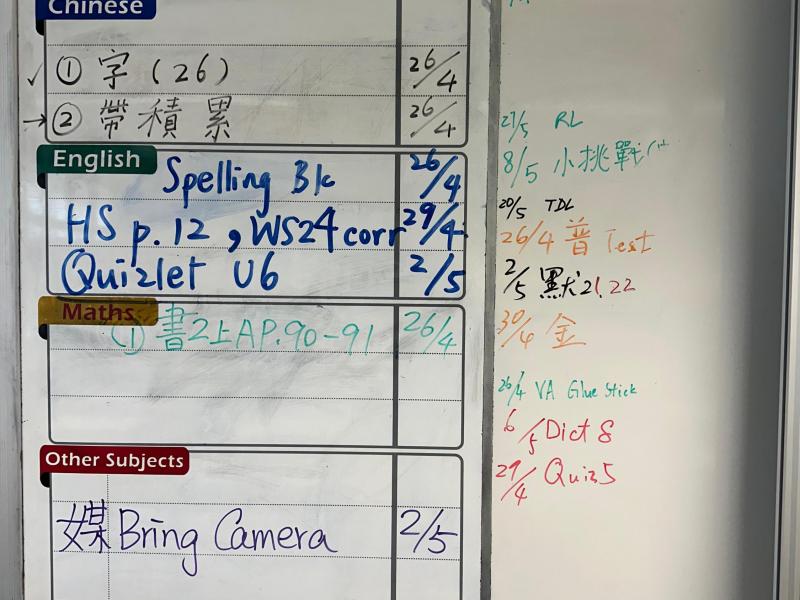 Chinese
① 字 (26) 26/4
→ ② 帶積累 26/4
English
Spelling Bk 26/4
HS p.12, WS24 corr 29/4
Quizlet U6 2/5
Maths
(1) 書2上A P.90-91 26/4
Other Subjects
媒 Bring Camera 2/5
27/5 RL
8/5 小挑戰
20/5 TDL
26/4 普 Test
2/5 默21.22
30/4 金
26/4 VA Glue Stick
6/5 Dict 8
29/4 Quiz 5